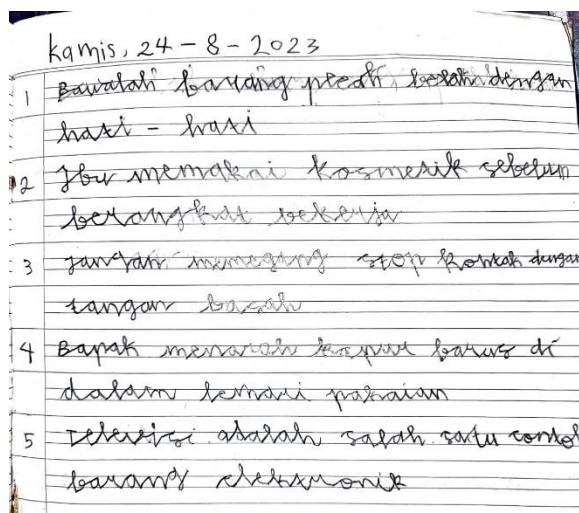 Kamis, 24 - 8 - 2023
1 Bawalah barang pecah, belah dengan
hati - hati
2 Ibu memakai kosmetik sebelum
berangkat bekerja
3 Jangan memegang stop kontak dengan
tangan basah
4 Bapak menaroh kapur barus di
dalam lemari pakaian
5 Televisi adalah salah satu contoh
barang elektronik